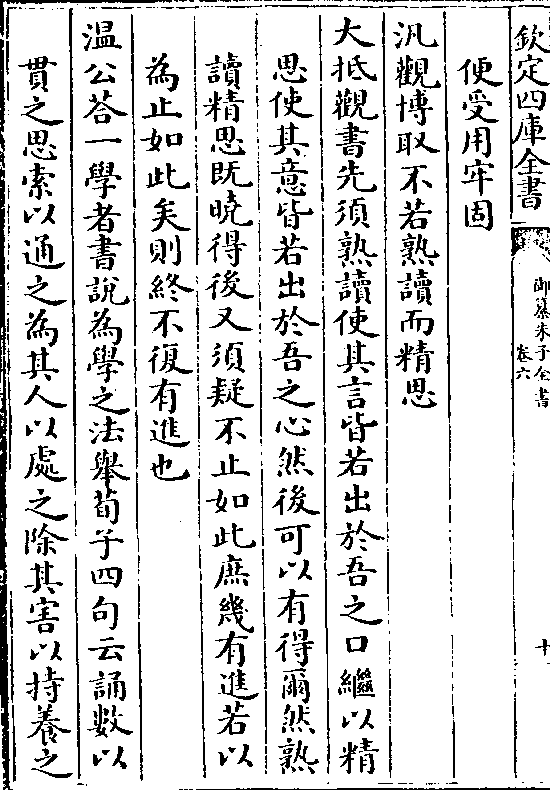 欽定四庫全書
御纂朱子全書
卷六
十
便受用牢固
汎觀博取不若熟讀而精思
大抵觀書先須熟讀使其言皆若出於吾之口繼以精
思使其意皆若出於吾之心然後可以有得爾然熟
讀精思既曉得後又須疑不止如此庶幾有進若以
為止如此矣則終不復有進也
温公荅一學者書說為學之法舉荀子四句云誦數以
貫之思索以通之為其人以處之除其害以持養之